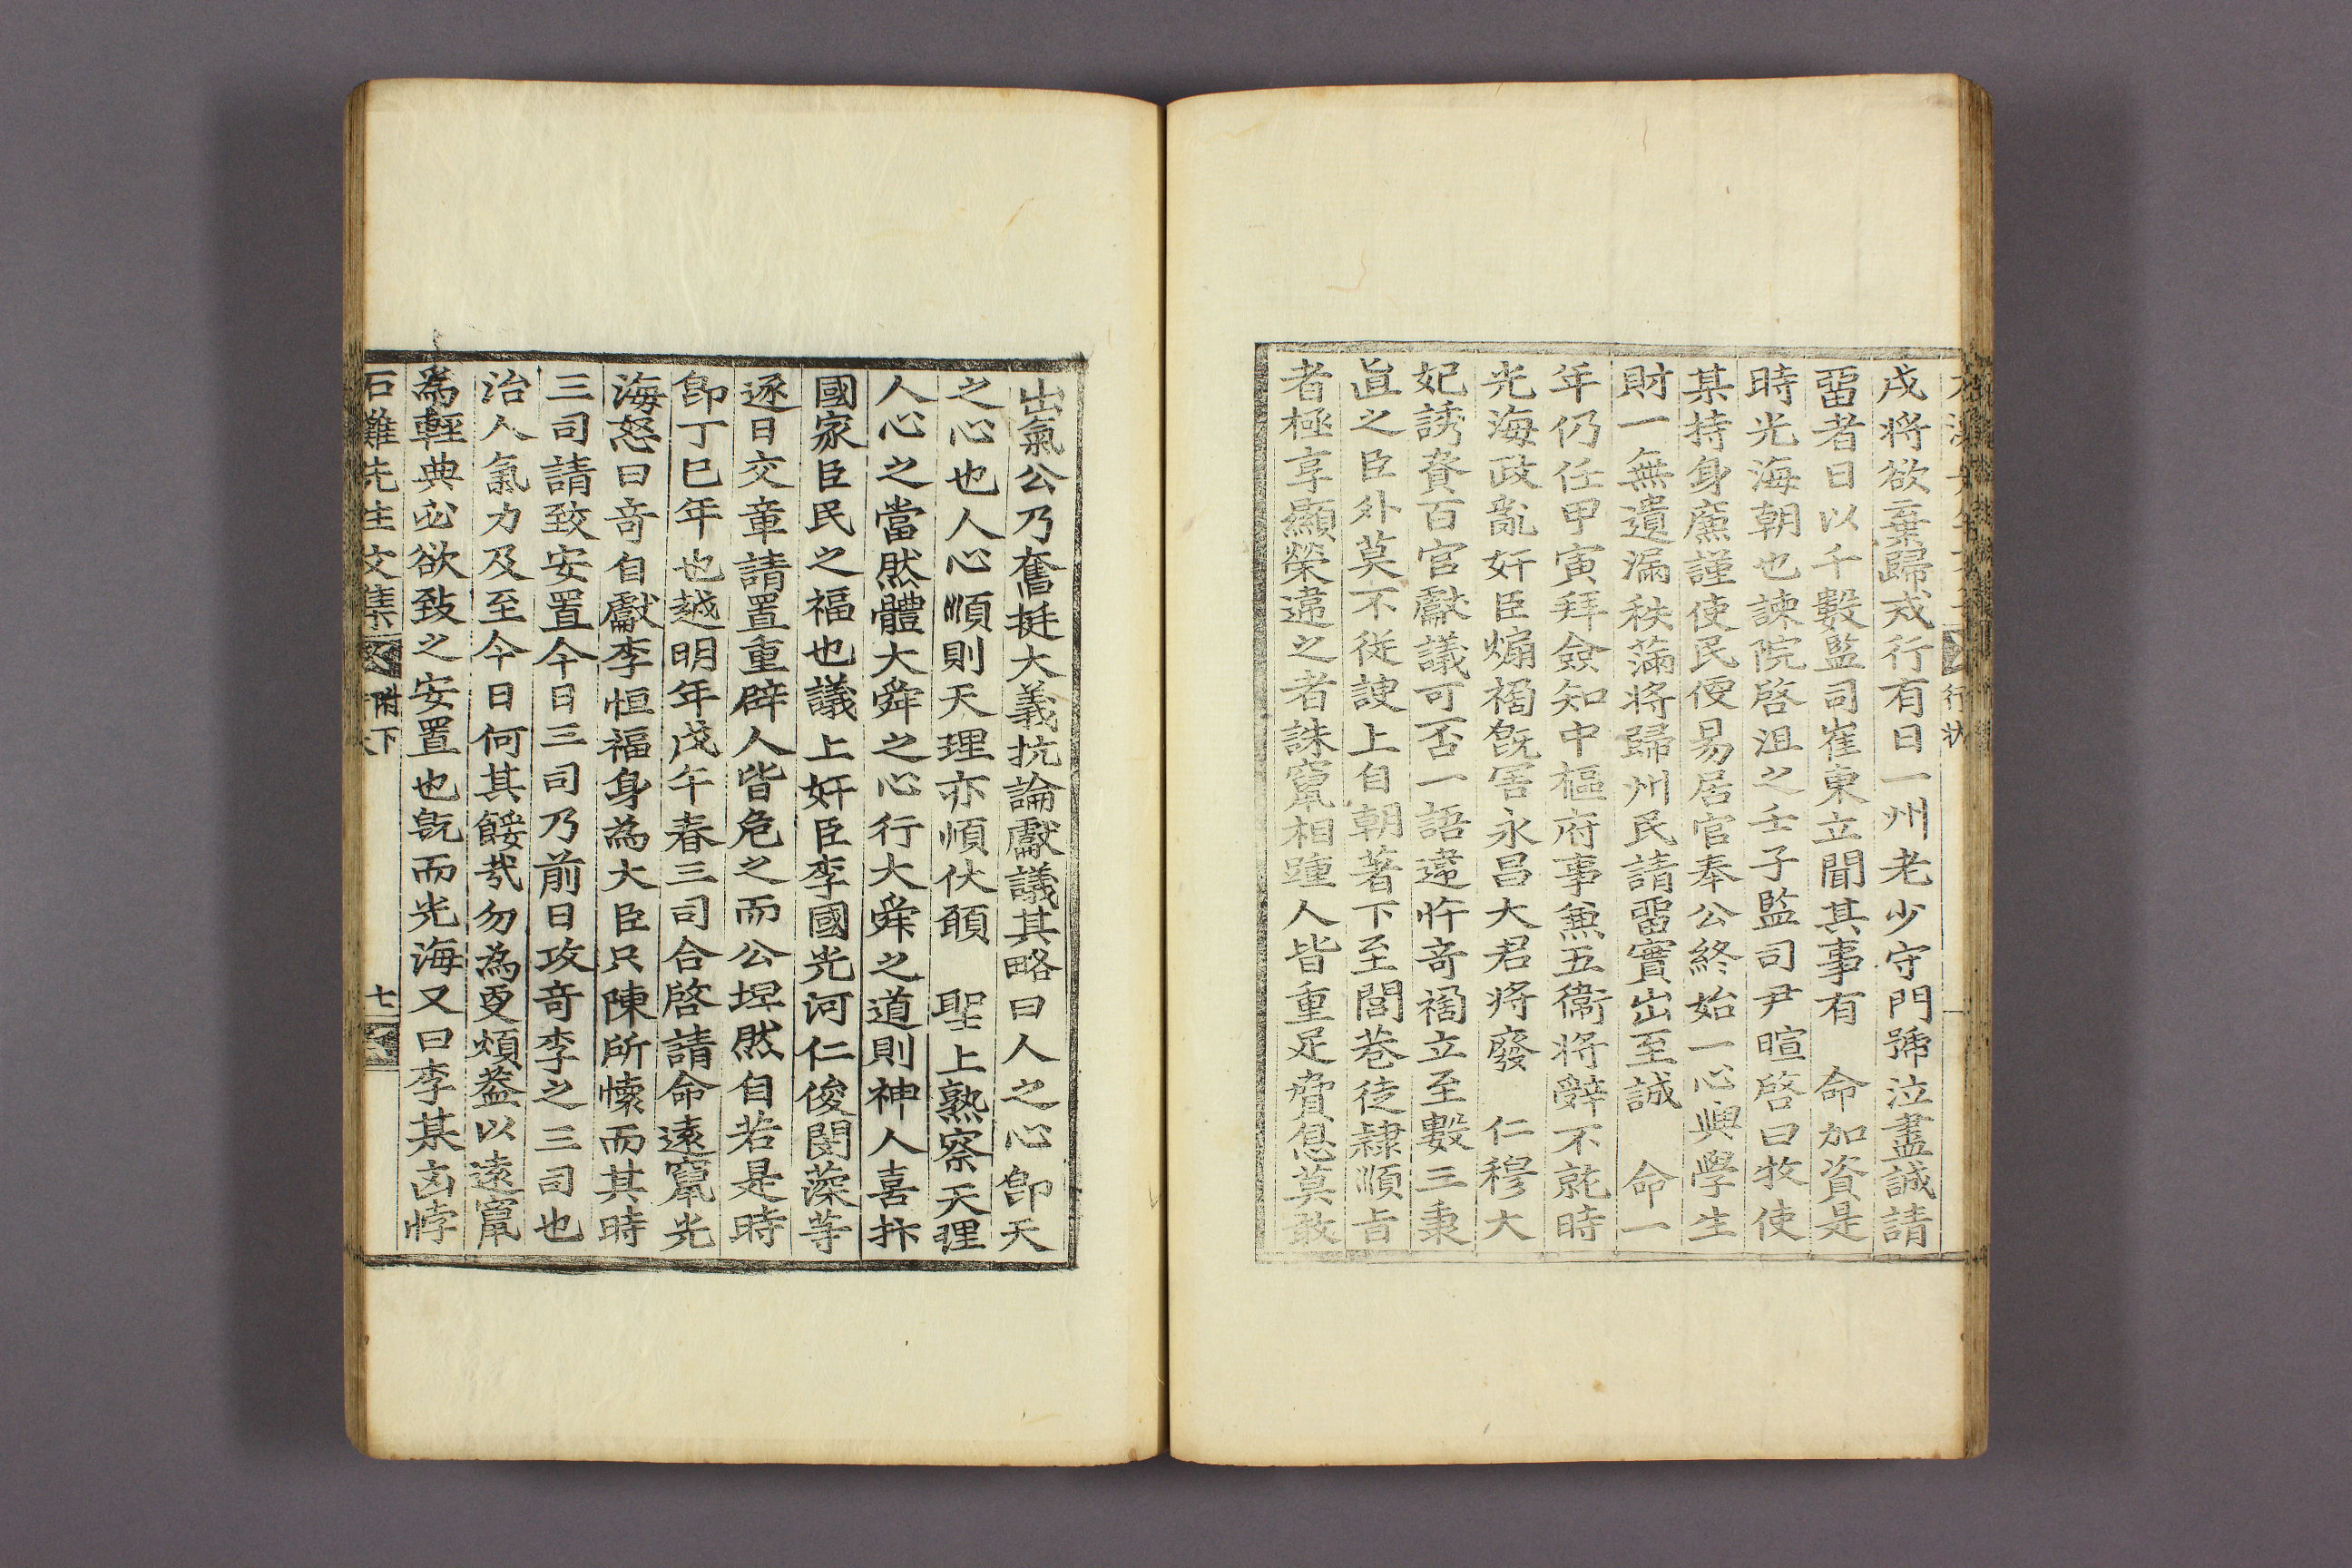 行狀
戌將欲棄歸戒行有日一州老少守門號泣盡誠請
畱者日以千數監司崔東立聞其事有 命加資是
時光海朝也諫院啓沮之壬子監司尹暄啓曰牧使
某持身廉謹使民便易居官奉公終始一心興學生
財一無遺漏秩滿將歸州民請畱實出至誠 命一
年仍任甲寅拜僉知中樞府事兼五衞將辭不就時
光海政亂奸臣煽禍旣害永昌大君將廢 仁穆大
妃誘賚百官獻議可否一語違忤奇禍立至數三秉
直之臣外莫不從諛上自朝著下至閭巷徒隷順旨
者極享顯榮違之者誅竄相踵人皆重足脅息莫敢
出氣公乃奮挺大義抗論獻議其略曰人之心卽天
之心也人心順則天理亦順伏願 聖上熟察天理
人心之當然體大舜之心行大舜之道則神人喜抃
國家臣民之福也議上奸臣李國光河仁俊閔藻等
逐日交章請置重辟人皆危之而公坦然自若是時
卽丁巳年也越明年戊午春三司合啓請命遠竄光
海怒曰奇自獻李恒福身為大臣只陳所懷而其時
三司請致安置今日三司乃前日攻奇李之三司也
治人氣力及至今日何其餒哉勿為更煩蓋以遠竄
為輕典必欲致之安置也旣而光海又曰李某凶悖
石灘先生文集 附下 七